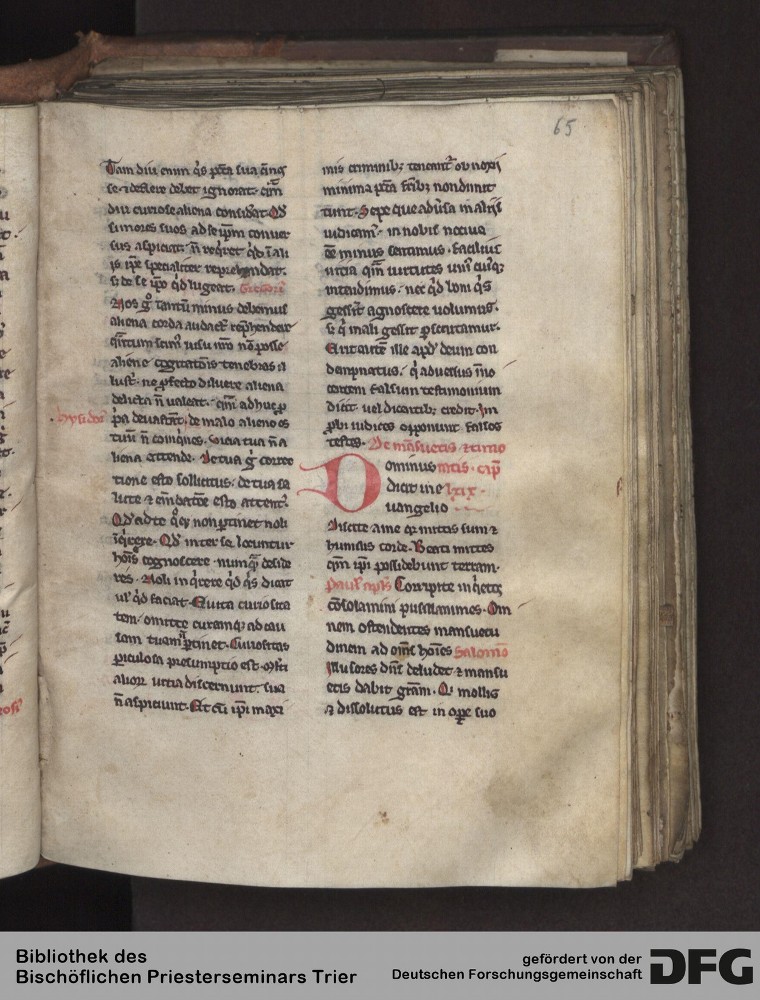 65
Tam diu enim q̄s pctā sua q̄
se ⁊ deflere debet ignorat. q̄m
diu curiose aliena considat. Qd
si mores suos ad se ip̄m conuer
sus aspiciat. n̄ reqret qd ī ali
is ip̄e specialiter reprehendat.
s; de se ip̄o qd lugeat. Gregori
Nos gͦ tantū minus debemus
aliena corda audact rep̄hendere
q̄ntum scim visu nr̄o nō posse
aliene cogitatōis tenebras il
lust. ne p̄fecto diluere aliena
delicta n̄ ualeat. q̄m adhuc p
hysidor
p̄a deuastant. de malo alieno os
tuū n̄ coinqnes. uitia tua n̄ a
liena attende. De tua g̊ correc
tione esto sollicitus. de tua sa
lute ⁊ em̄datōe esto attent.
Qd ad te non ptinet noli
īqrere. Qd inter se locuntur
hoīs cognoscere numq̄ deside
res. Noli inqrere qd qs dicat
ul' qd faciat. Euita curiosita
tem. omitte curamq; ad cau
sam tuam ptinet. Curiositas
piculosa presumptio est. Mlti
alior uitia discernunt. sua
n̄ aspiciunt. Et cū ip̄i maxi
mis criminib; teneant ob noxij
minima pctā frib; non dimit
tunt. Sepe que aduersa in alijs
iudicam. in nobis nociua
eē minus sentimus. facilius
uitia q̄m uirtutes uni cuiq;
intendimus. nec qd boni qs
gesserit agnoscere uolumus.
s; q mali gessit pscrutamur.
Erit autē ille apd deum con
dempnatus. q aduersus īno
centem falsum testimonium
dicit. uel dicantib; credit. In
pbi iudices opponunt falsos
testes. De mansuetis ⁊ timo
Ominus ratis. cap
dicit in e lxix.
uangelio
Discite a me q̄ mitis sum ⁊
humilis corde. Beati mites
q̄m ip̄i possidebunt terram.
Paul apls Corripite inqetos
cōsolamini pusillanimes. Om
nem ostendentes mansuetu
dinem ad om̄s hoīes Salomō
Illusores dn̄s deludet ⁊ mansu
etis dabit gr̄am. Qi mollis
⁊ dissolutus est in ope suo
Bibliothek des
Bischöflichen Priesterseminars Trier
gefördert von der
Deutschen Forschungsgemeinschaft
DFG